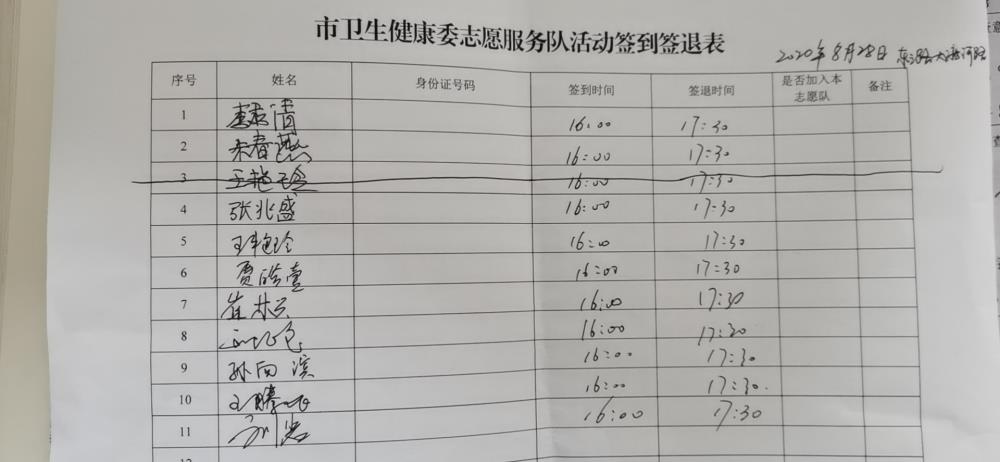 市卫生健康委志愿服务队活动签到签退表
2020年8月28日
序号 姓名 身份证号码 签到时间 签退时间 是否加入本志愿队 备注
1 清 16:00 17:30
2 宋春燕 16:00 17:30
3 王艳玲 16:00 17:30
4 张兆盛 16:00 17:30
5 王艳玲 16:00 17:30
6 贾皓壹 16:00 17:30
7 崔 16:00 17:30
8 16:00 17:30
9 孙向滨 16:00 17:30
10 王 16:00 17:30
11 16:00 17:30